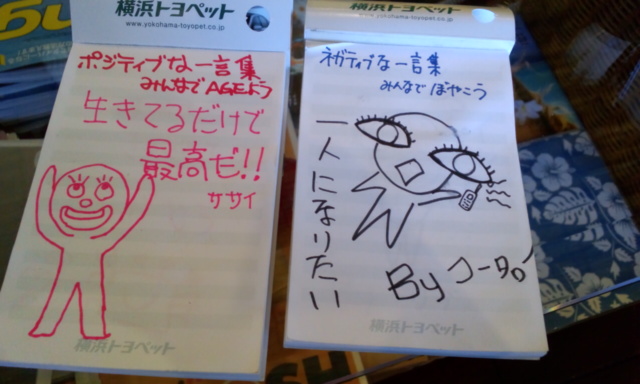 横浜トヨペット
www.yokohama-toyopet.co.jp
ポジティブな一言集
みんなでAGEよう
生きてるだけで
最高だ!!
ササイ
横浜トヨペット
横浜トヨペット
www.yokohama-toyopet.co.jp
ネガティブな一言集
みんなでぼやこう
一人になりたい
By コータロー
横浜トヨペット
SH